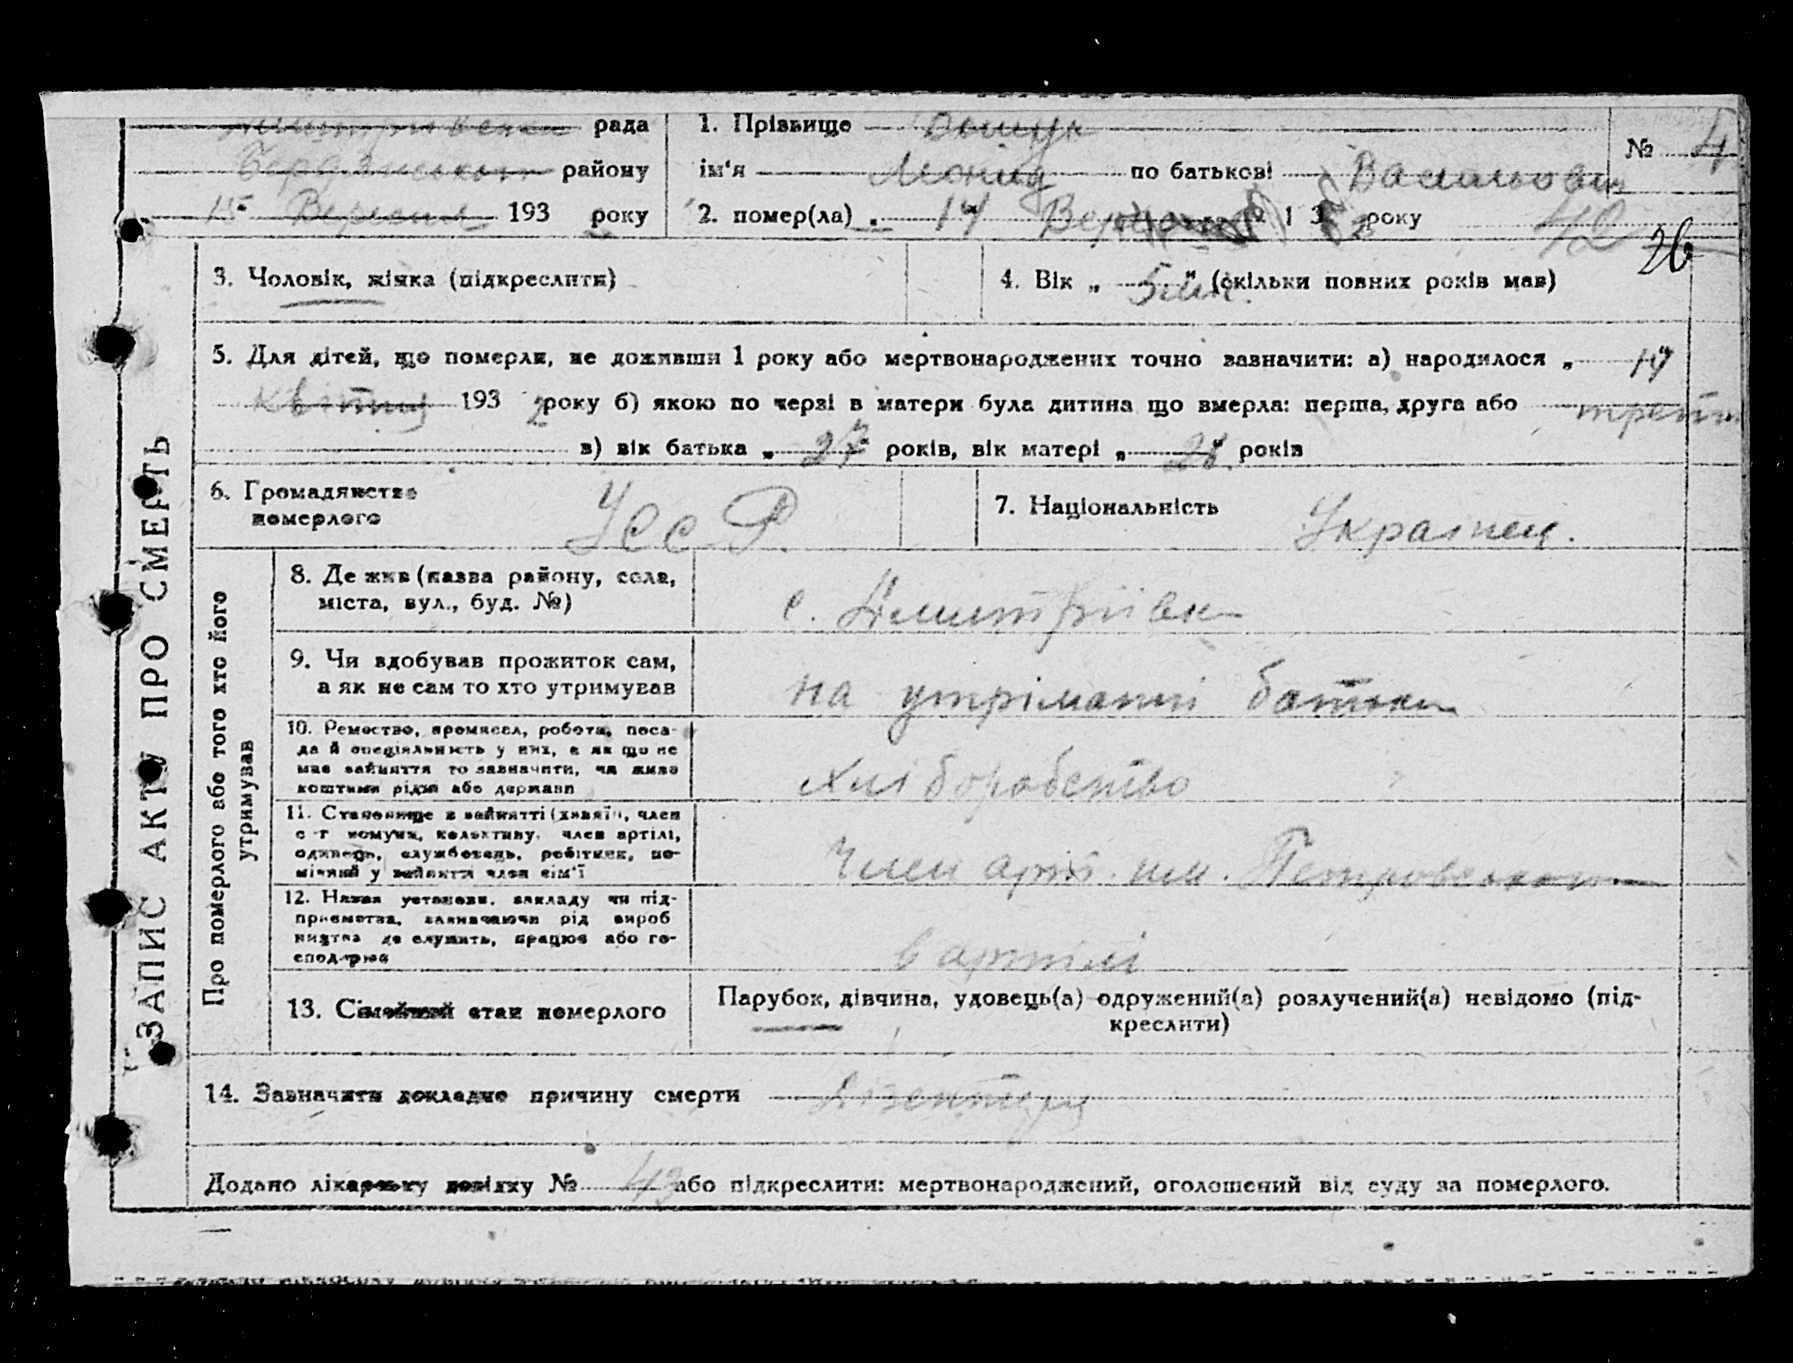 рада
Бердянського району
15 Вересня 193 року
1. Прізвище
ім'я Леонід по батькові Васильович
2. помер(ла) „ 14 року
№ 4
42
26
ЗАПИС АКТУ ПРО СМЕРТЬ
3. Чоловік, жінка (підкреслити)
4. Вік „ 5 міс. " (скільки повних років мав)
5. Для дітей, що померли, не доживши 1 року або мертвонароджених точно зазначити: а) народилося „ 14"
квітня 193 2 року б) якою по черзі в матери була дитина що вмерла: перша, друга або третя
в) вік батька „ 27 років, вік матері „ 28 " років
6. Громадянство
померлого
УССР
7. Національність Українец.
Про померлого або того хто його
утримував
8. Де жив (назва району, села,
міста, вул., буд. №)
с. Дмитрівка
9. Чи здобував прожиток сам,
а як не сам то хто утримував
на утріманні батька
10. Ремество, промисел, робота, поса-
да й спеціяльність у них, а як що не
має зайняття то зазначити, чи живе
коштами рідні або держави
хліборобство
11. Становище в зайнятті (хазяїн, член
с-г комуни, колективу, член артілі,
одинець, службовець, робітник, по-
мічний у зайнятті член сім'ї
Член арт. им. Петровського
12. Назва установи, закладу чи під-
приємства, зазначаючи рід вироб
ництва де служить, працює або го-
сподарює
в артілі
13. Сімейний стан померлого
Парубок, дівчина, удовець(а) одружений(а) розлучений(а) невідомо (під-
креслити)
14. Зазначити докладно причину смерти Дізентерія
Додано лікарську довідку № 43 або підкреслити: мертвонароджений, оголошений від суду за померлого.